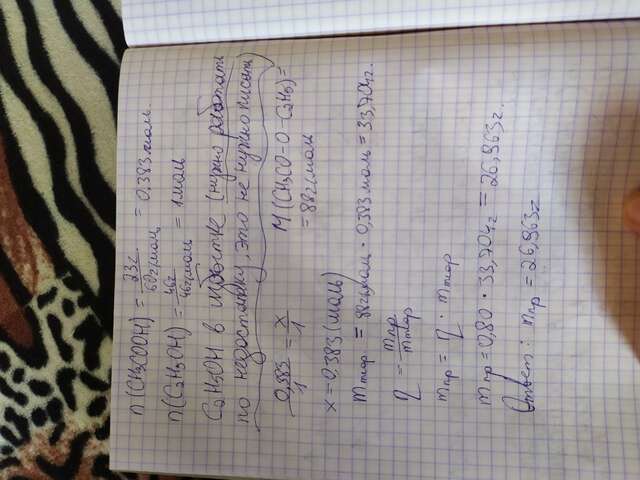 n(CH3COOH) = 23г / 60г/моль = 0,383 моль
n(C2H5OH) = 46г / 46г/моль = 1 моль
C2H5OH в избытке (нужно работать
по недостатку, это не нужно писать)
0,383/1 = x/1 M(CH3CO-O-C2H5) =
= 88г/моль
x = 0,383 (моль)
mтеор = 88г/моль · 0,383 моль = 33,704г.
η = mпр / mтеор
mпр = η · mтеор
mпр = 0,80 · 33,704г = 26,963г.
Ответ: mпр = 26,963г